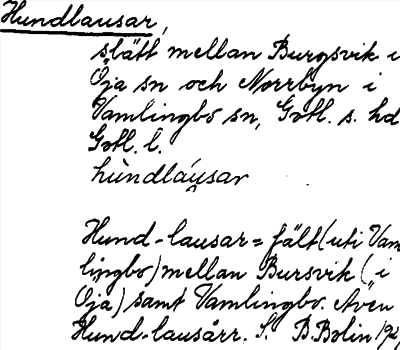 Hundlausar,
slätt mellan Burgsvik i
Öja sn och Norrbyn i
Vamlingbo sn, Gotl. s. hd
Gotl. l.
hùndláusar
Hund-lausar = fält (uti Vam
lingbo) mellan Bursvik (i
Öja) samt Vamlingbo. Även
Hund-lausårr. S. B. Bolin